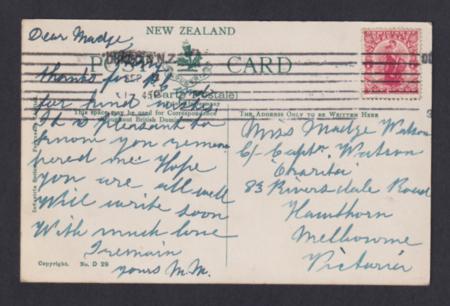 NEW ZEALAND
POST CARD
(Carte Postale)
This space may be used for Correspondence
The Address Only to be Written Here
Dear Madge,
thanks for
for kind wishes
It is pleasant to
know you remem
bered me. Hope
you are all well
Will write soon
With much love
I remain
yours M.M.
Miss Madge Watson
C/- Captn. Watson
83 Riversdale Road
Hawthorn
Melbourne
Victoria
Copyright. No. D 29